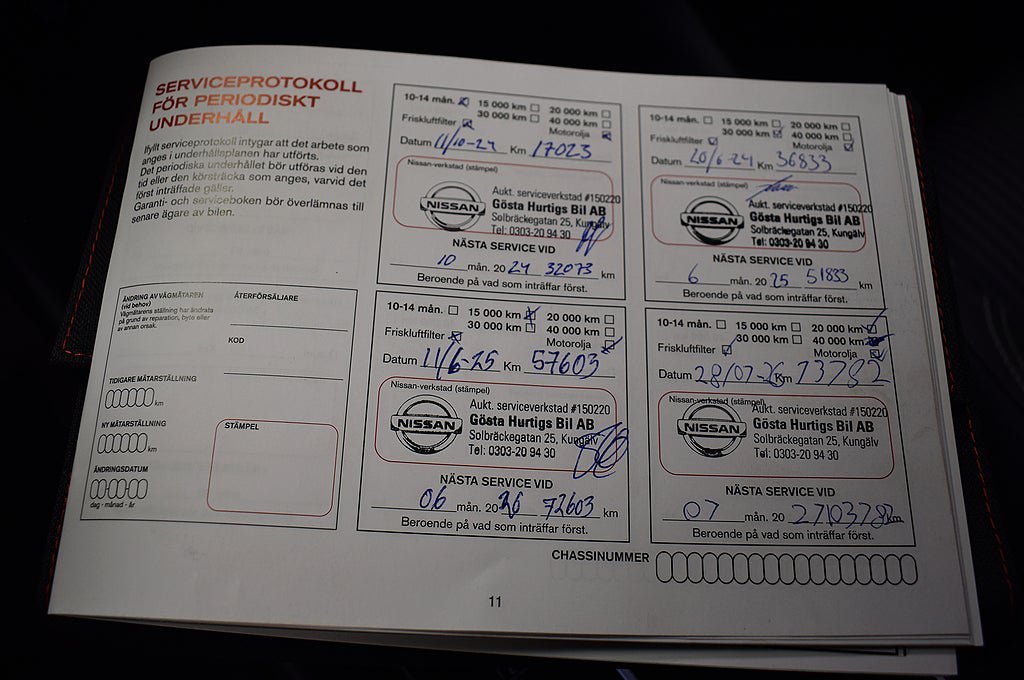 SERVICEPROTOKOLL
FÖR PERIODISKT
UNDERHÅLL
Ifyllt serviceprotokoll intygar att det arbete som
anges i underhållsplanen har utförts.
Det periodiska underhållet bör utföras vid den
tid eller den körsträcka som anges, varvid det
först inträffade gäller.
Garanti- och serviceboken bör överlämnas till
senare ägare av bilen.
ÄNDRING AV VÄGMÄTAREN
(vid behov)
Vägmätarens ställning har ändrats
på grund av reparation, byte eller
av annan orsak.
ÅTERFÖRSÄLJARE
KOD
TIDIGARE MÄTARSTÄLLNING
km
NY MÄTARSTÄLLNING
km
ÄNDRINGSDATUM
dag - månad - år
STÄMPEL
10-14 mån. 15 000 km 20 000 km
30 000 km 40 000 km
Friskluftfilter Motorolja
Datum 11/10-24 Km 17023
Nissan-verkstad (stämpel)
NISSAN
Aukt. serviceverkstad #150220
Gösta Hurtigs Bil AB
Solbräckegatan 25, Kungälv
Tel: 0303-20 94 30
NÄSTA SERVICE VID
10 mån. 20 24 32073 km
Beroende på vad som inträffar först.
10-14 mån. 15 000 km 20 000 km
30 000 km 40 000 km
Friskluftfilter Motorolja
Datum 20/6-24 Km 36833
Nissan-verkstad (stämpel)
NISSAN
Aukt. serviceverkstad #150220
Gösta Hurtigs Bil AB
Solbräckegatan 25, Kungälv
Tel: 0303-20 94 30
NÄSTA SERVICE VID
6 mån. 20 25 51833 km
Beroende på vad som inträffar först.
10-14 mån. 15 000 km 20 000 km
30 000 km 40 000 km
Friskluftfilter Motorolja
Datum 11/6-25 Km 57603
Nissan-verkstad (stämpel)
NISSAN
Aukt. serviceverkstad #150220
Gösta Hurtigs Bil AB
Solbräckegatan 25, Kungälv
Tel: 0303-20 94 30
NÄSTA SERVICE VID
06 mån. 20 26 72603 km
Beroende på vad som inträffar först.
10-14 mån. 15 000 km 20 000 km
30 000 km 40 000 km
Friskluftfilter Motorolja
Datum 28/07-26 Km 73782
Nissan-verkstad (stämpel)
NISSAN
Aukt. serviceverkstad #150220
Gösta Hurtigs Bil AB
Solbräckegatan 25, Kungälv
Tel: 0303-20 94 30
NÄSTA SERVICE VID
07 mån. 20 km
Beroende på vad som inträffar först.
CHASSINUMMER
11